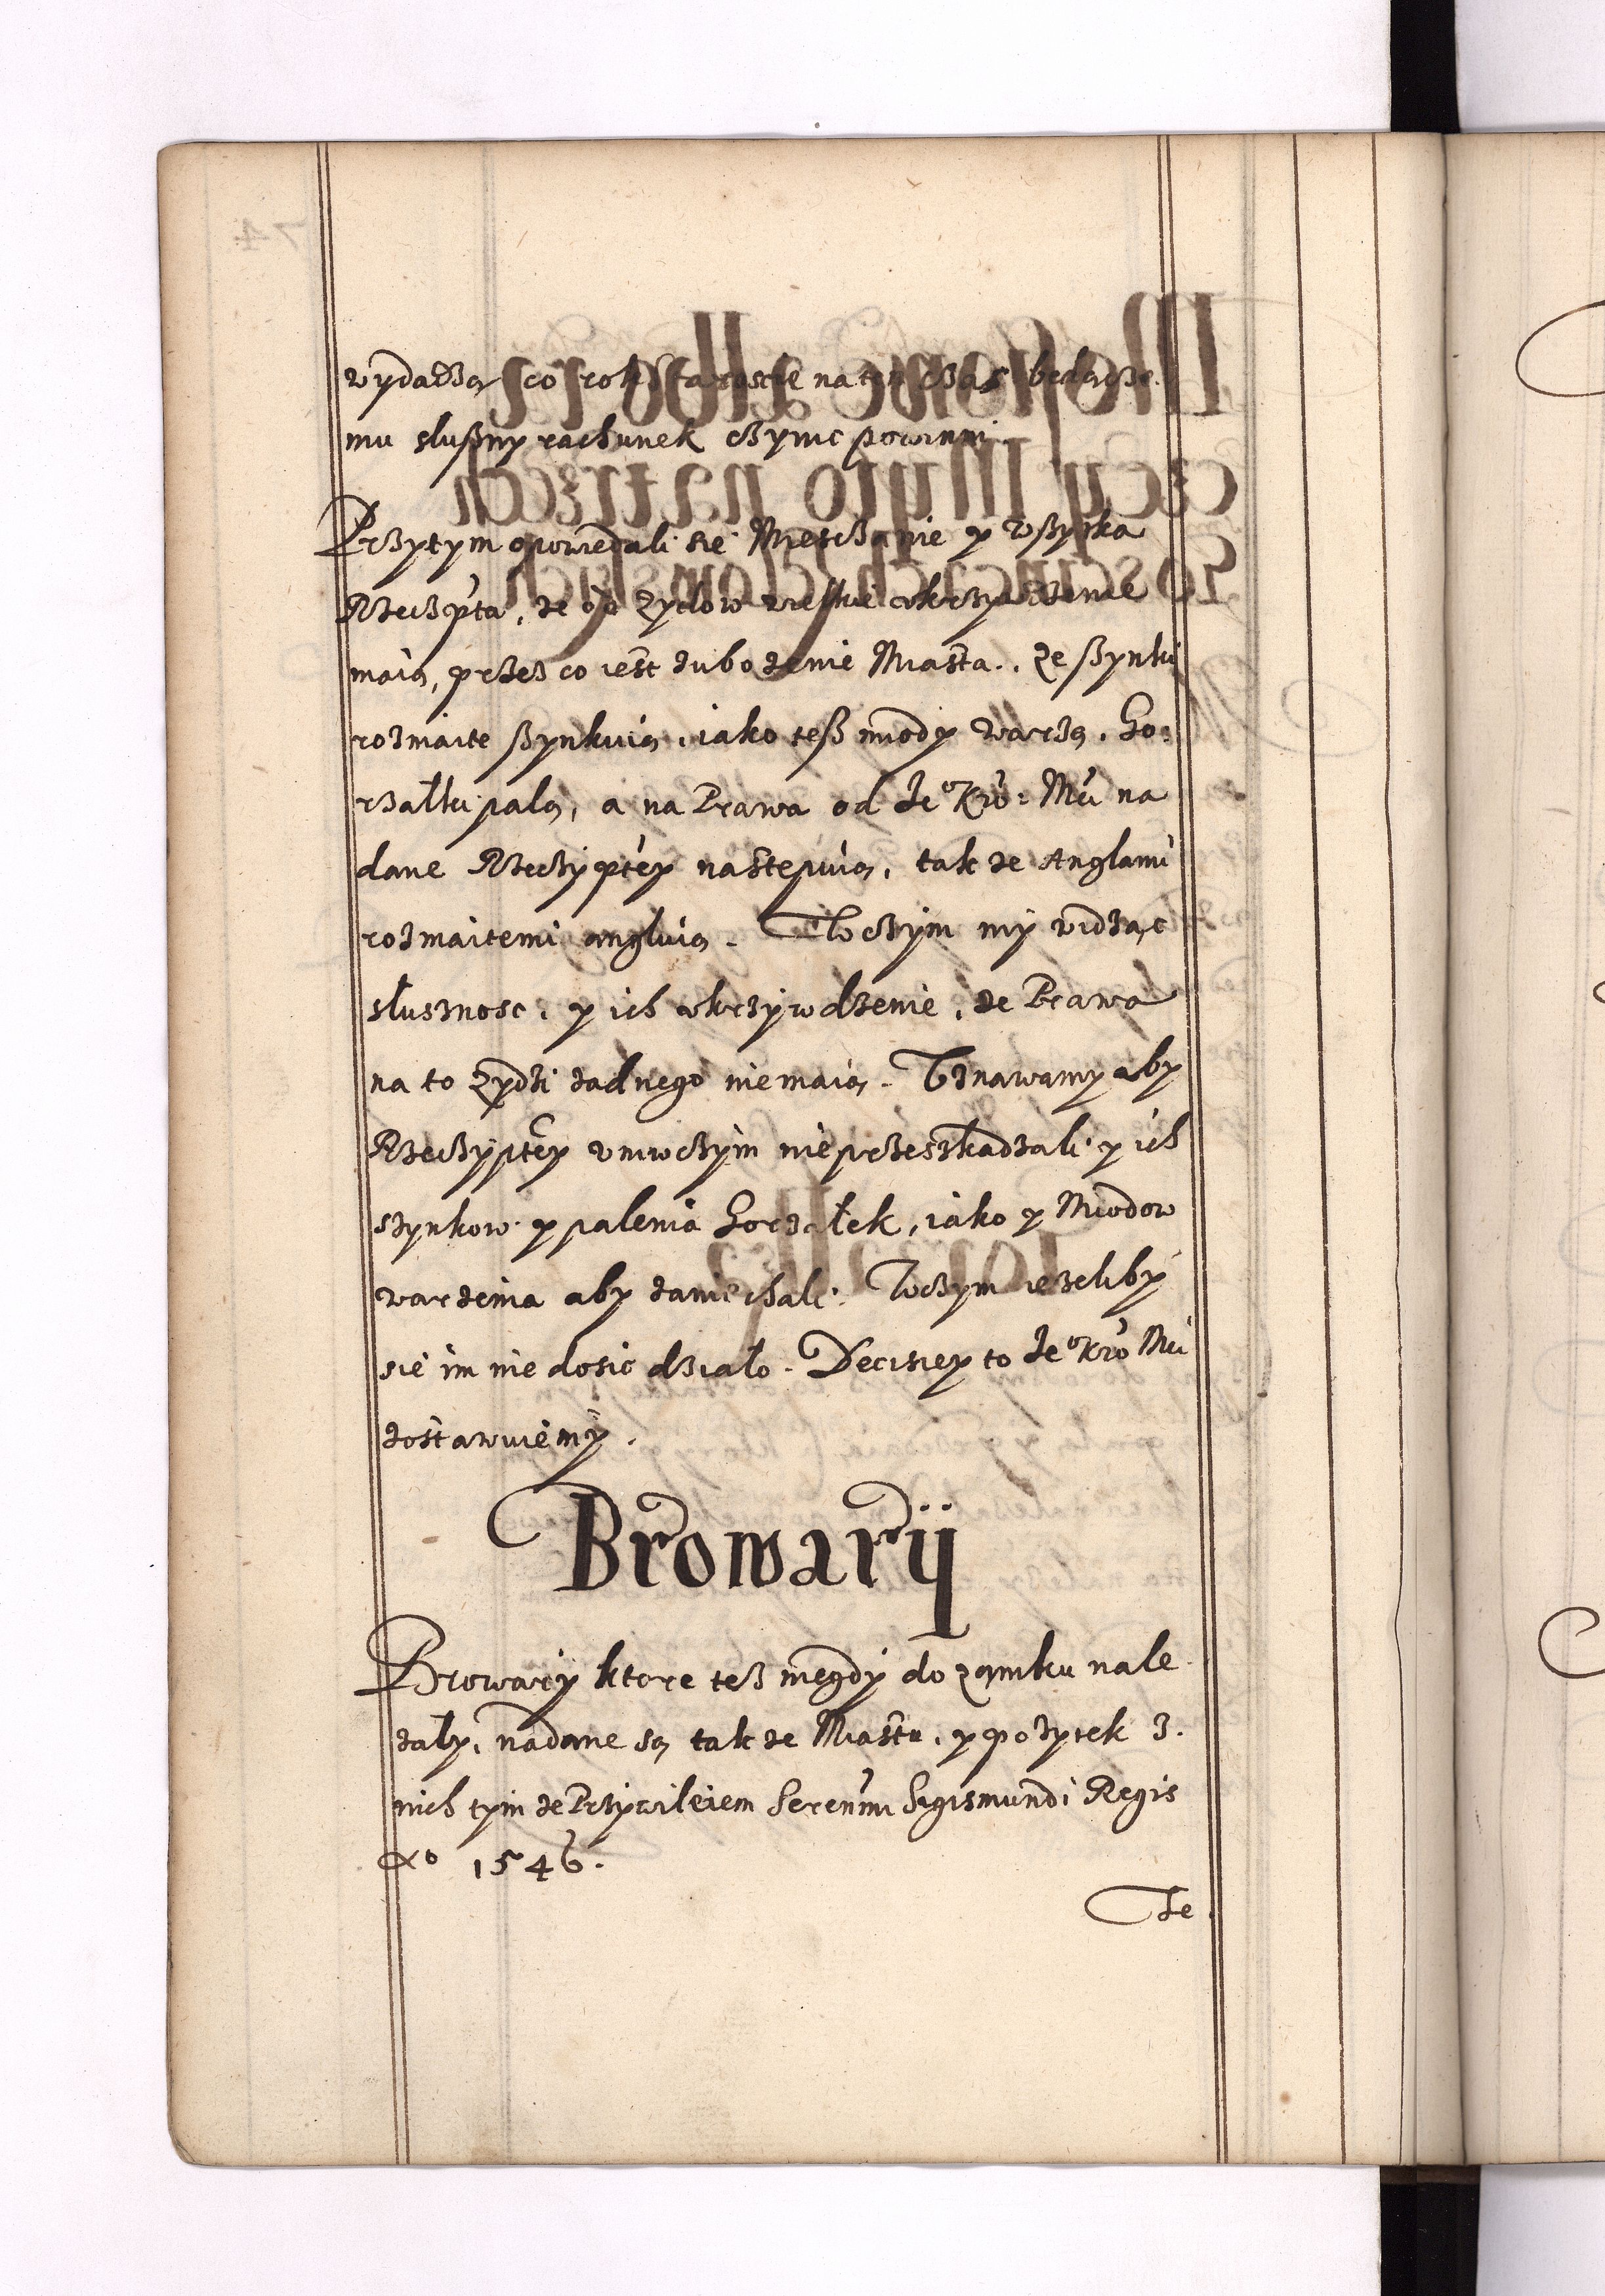 wydadzą co rok Staroscie na ten czas bedącze
mu sluszny rachunek czynic powinni.
Przytym opowiedali sie Miesczanie y wszytka
Rzeczpta, że od Zydow wielkie vkrzywdzenie
maią, przez co iest zubożenie Miasta. Ze szynki
rozmaite szynkuią, iako tesz miody warzą, Go:
rzalki palą, a na Prawa od Je° Kro: Mći na
dane Rzeczyptey nastepuią, takze Anglami
rozmaitemi angluią. W czym my widząc
slusznosc, y ich vkrzywdzenie, ze Prawa
na to Zydzi zadnego nie maią. Vznawamy aby
Rzeczyptey w niwczym nie przeszkadzali y ich
szynkow y palenia Gorzalek, iako y Miodow
warzenia aby zaniechali. W czym iezeliby
sie im nie dosic dzialo. Decisiey to Je° Kro Mći
zostawuiemy.
Browarÿ
Browary ktore tesz niegdy do zamku nale
zaly, nadane są takze Miastu, y pożytek z
nich tym ze Przywileiem Serenmi Sigismundi Regis
A° 1546.
Ze
74